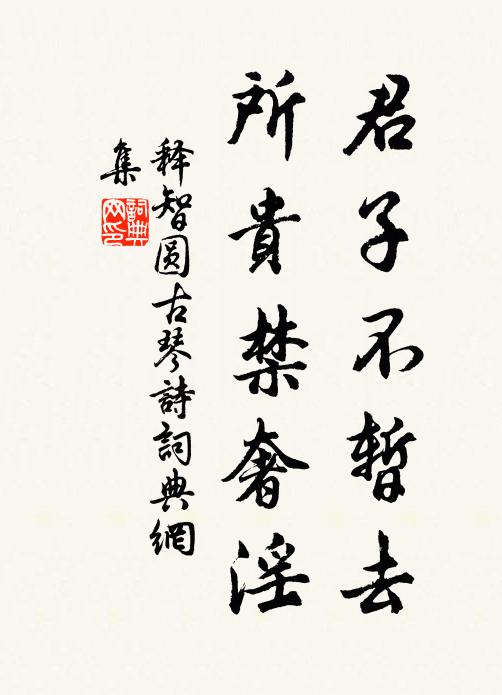 君子不暫去
所貴禁奢淫
释智圆古琴詩詞典網
集
詞典
网印